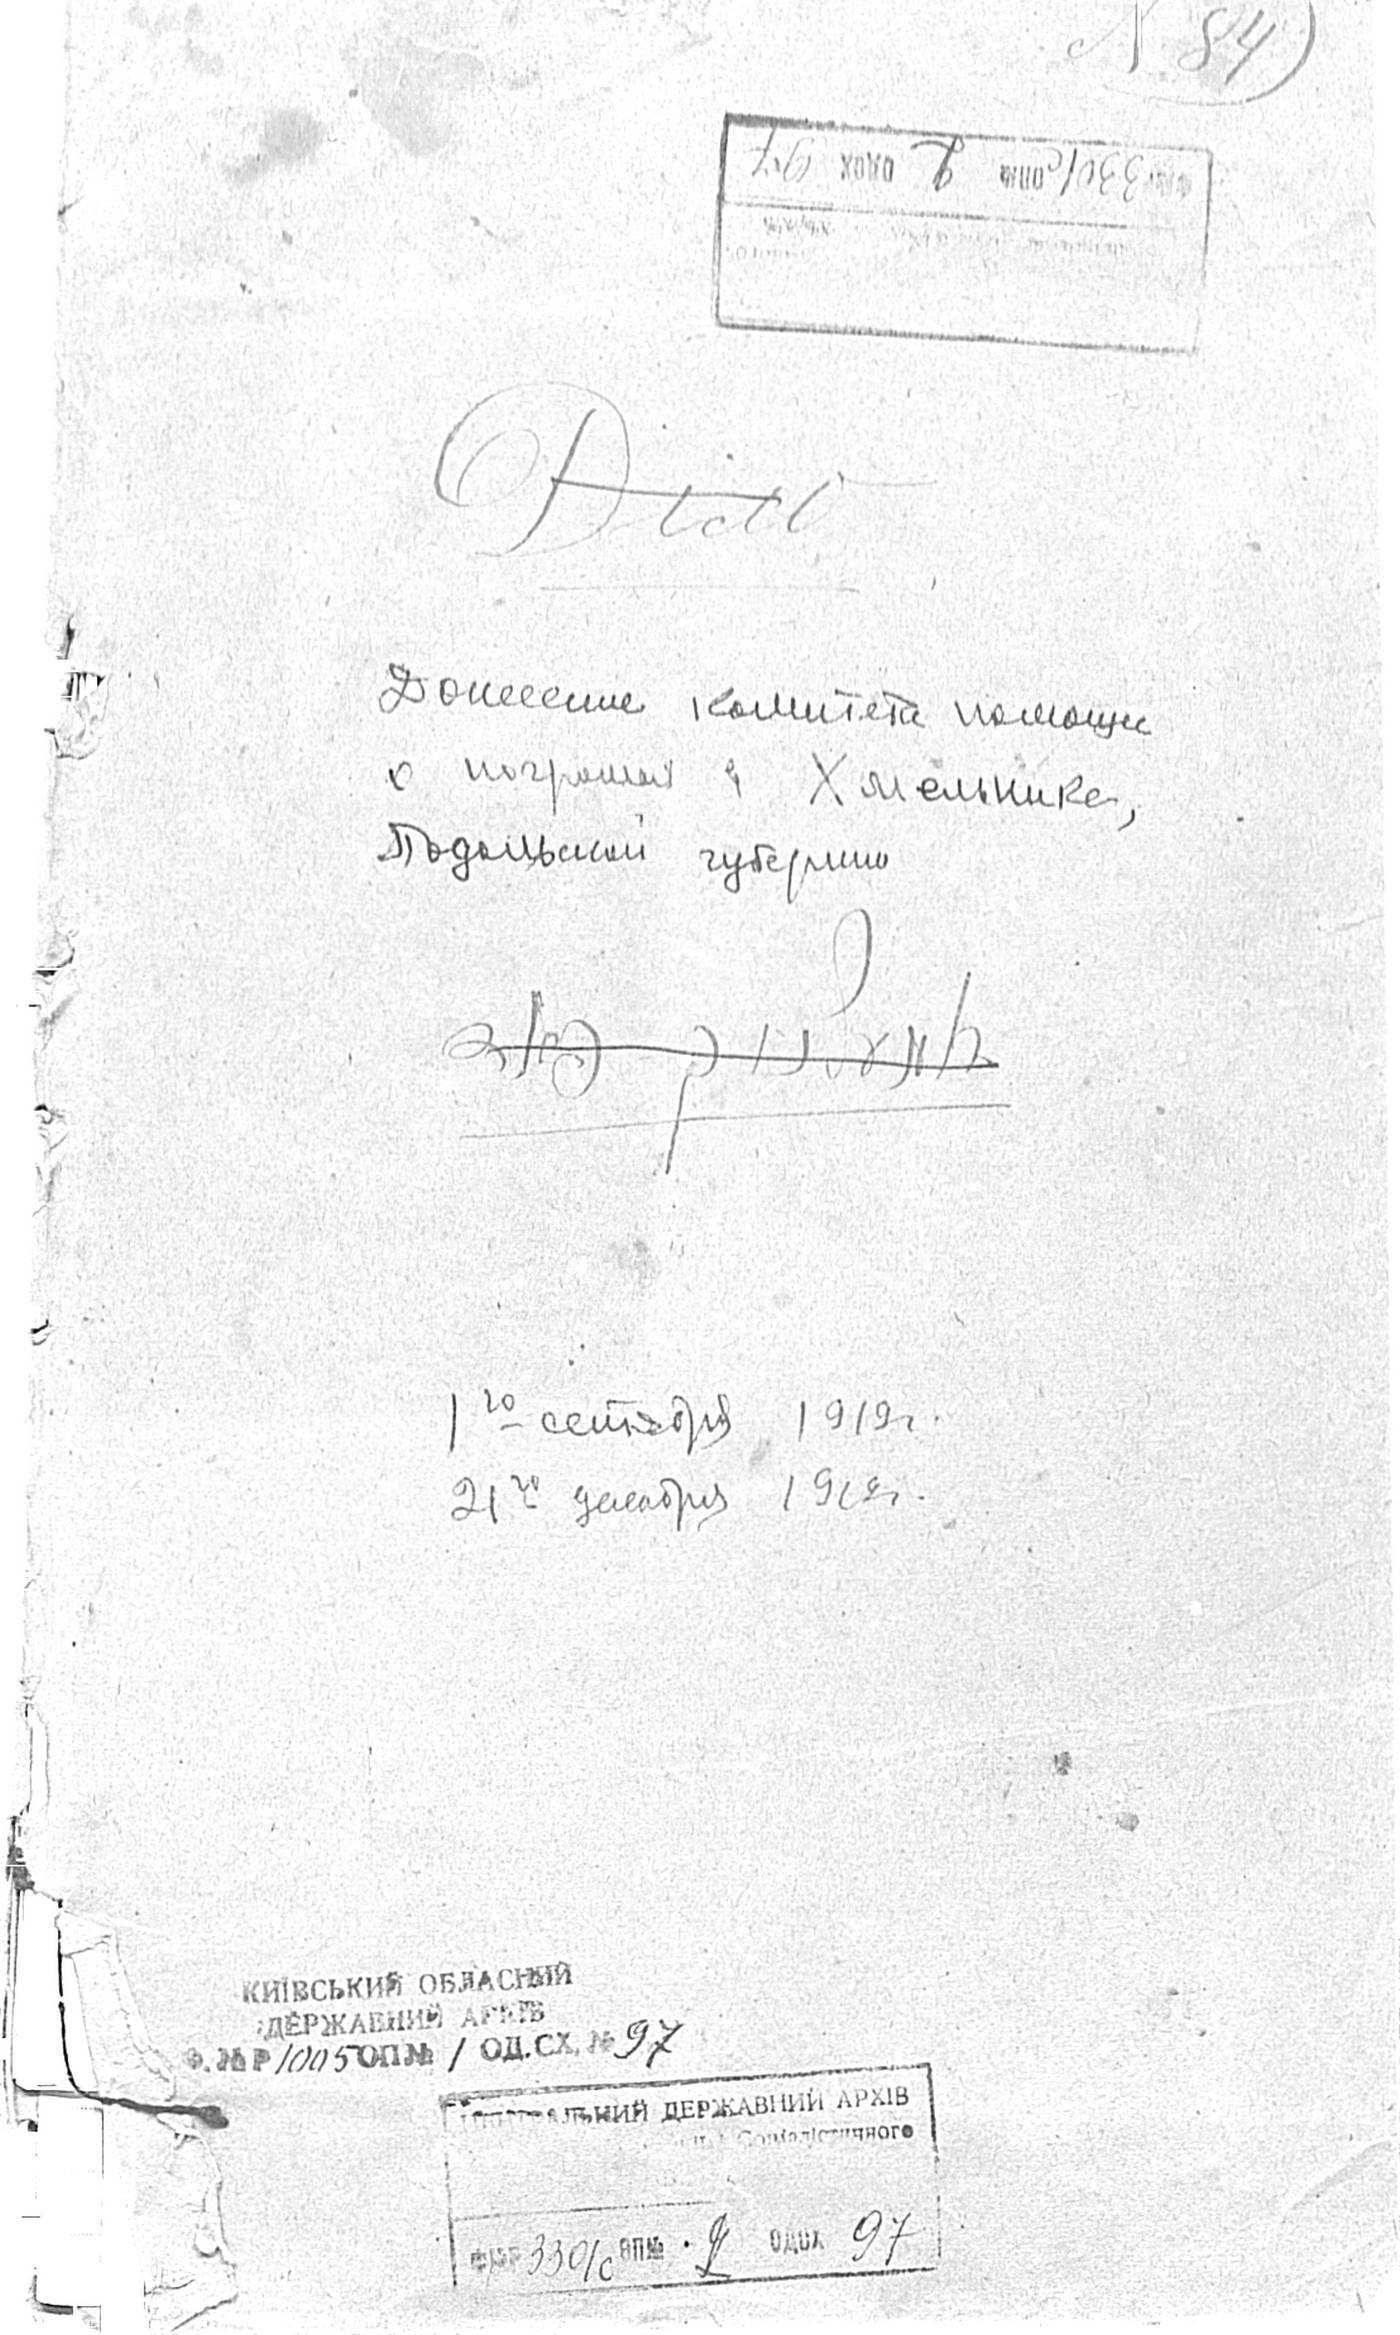 N 84)
Ф.№Р 330/с ОП№ 2 ОДСХ 97
Донесение комитета помощи
о погроме в Хмельнике,
Подольской губернии
1го сентября 1919г.
21го декабря 1919г.
КИЇВСЬКИЙ ОБЛАСНИЙ
ДЕРЖАВНИЙ АРХІВ
Ф.№Р 1005 ОП№ 1 ОД.СХ.№ 97
ЦЕНТРАЛЬНИЙ ДЕРЖАВНИЙ АРХІВ
Соціалістичного
Ф.№Р 330/с ОП№ 2 ОДСХ 97